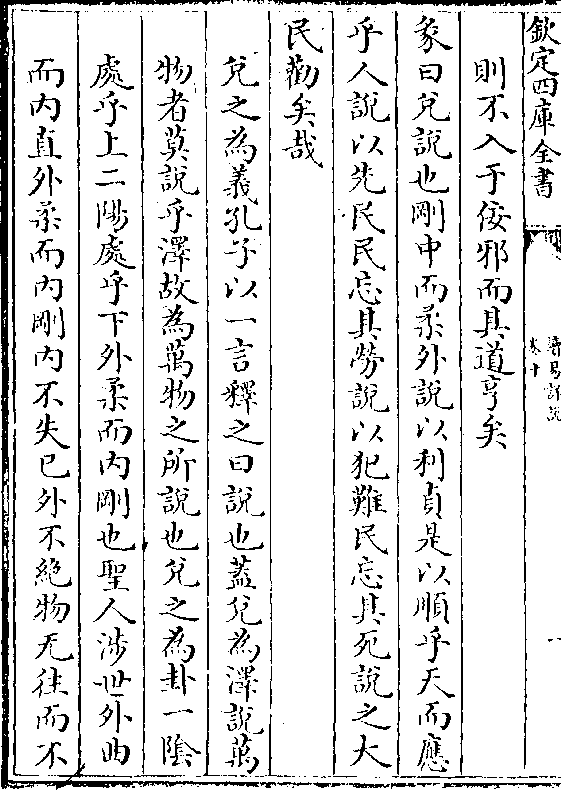 欽定四庫全書
讀易詳説
卷十
則不入于佞邪而其道亨矣
彖曰兌說也剛中而柔外說以利貞是以順乎天而應
乎人說以先民民忘其勞說以犯難民忘其死說之大
民勸矣哉
兌之為義孔子以一言釋之曰說也蓋兌為澤說萬
物者莫說乎澤故為萬物之所說也兌之為卦一陰
處乎上二陽處乎下外柔而內剛也聖人涉世外曲
而內直外柔而內剛內不失已外不絶物无往而不